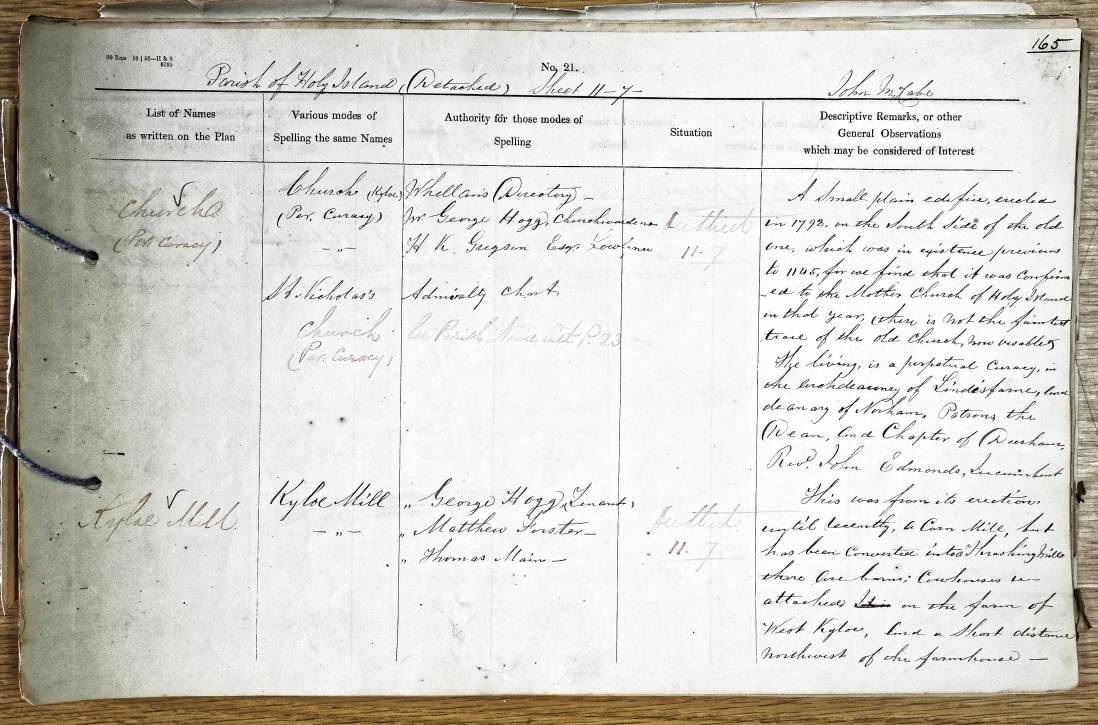 165
No. 21.
Parish of Holy Island, (Detached) Sheet 11-7- John McCabe
List of Names
as written on the Plan
Various modes of
Spelling the same Names
Authority for those modes of
Spelling
Situation
Descriptive Remarks, or other
General Observations
which may be considered of Interest
Church
(Per. Curacy)
Church (Kyloe)
(Per. Curacy)
— „ —
St. Nicholas's
Church
(Per. Curacy)
Whellan's Directory
Mr. George Hogg, Churchwarden
H K Gregson Esqr. Lowlinn
Admiralty Chart
See Parish Name List P 23
See Sheet
11. 7
A Small plain edifice, erected
in 1792, on the South Side of the old
one, which was in existence previous
to 1145, for we find that it was confirm
-ed to the Mother Church of Holy Island
in that year, there is not the faintest
trace of the old Church, now visable
The living, is a perpetual Curacy, in
the Archdeaconry of Lindisfarne, and
deanary of Norham, Patrons the
Dean, and Chapter of Durham,
Revd. John Edmonds, Incumbent
Kyloe Mill
Kyloe Mill
— „ —
„ George Hogg, Tenant,
„ Matthew Forster —
„ Thomas Main —
See Sheet
11. 7
This was from its erection,
until lecently, a Corn Mill, but
has been Converted into a Thrashing Mill
there are barns; Cowhouses &c
attached It is on the farm of
West Kyloe, and a Short distance
Northwest of the farmhouse —